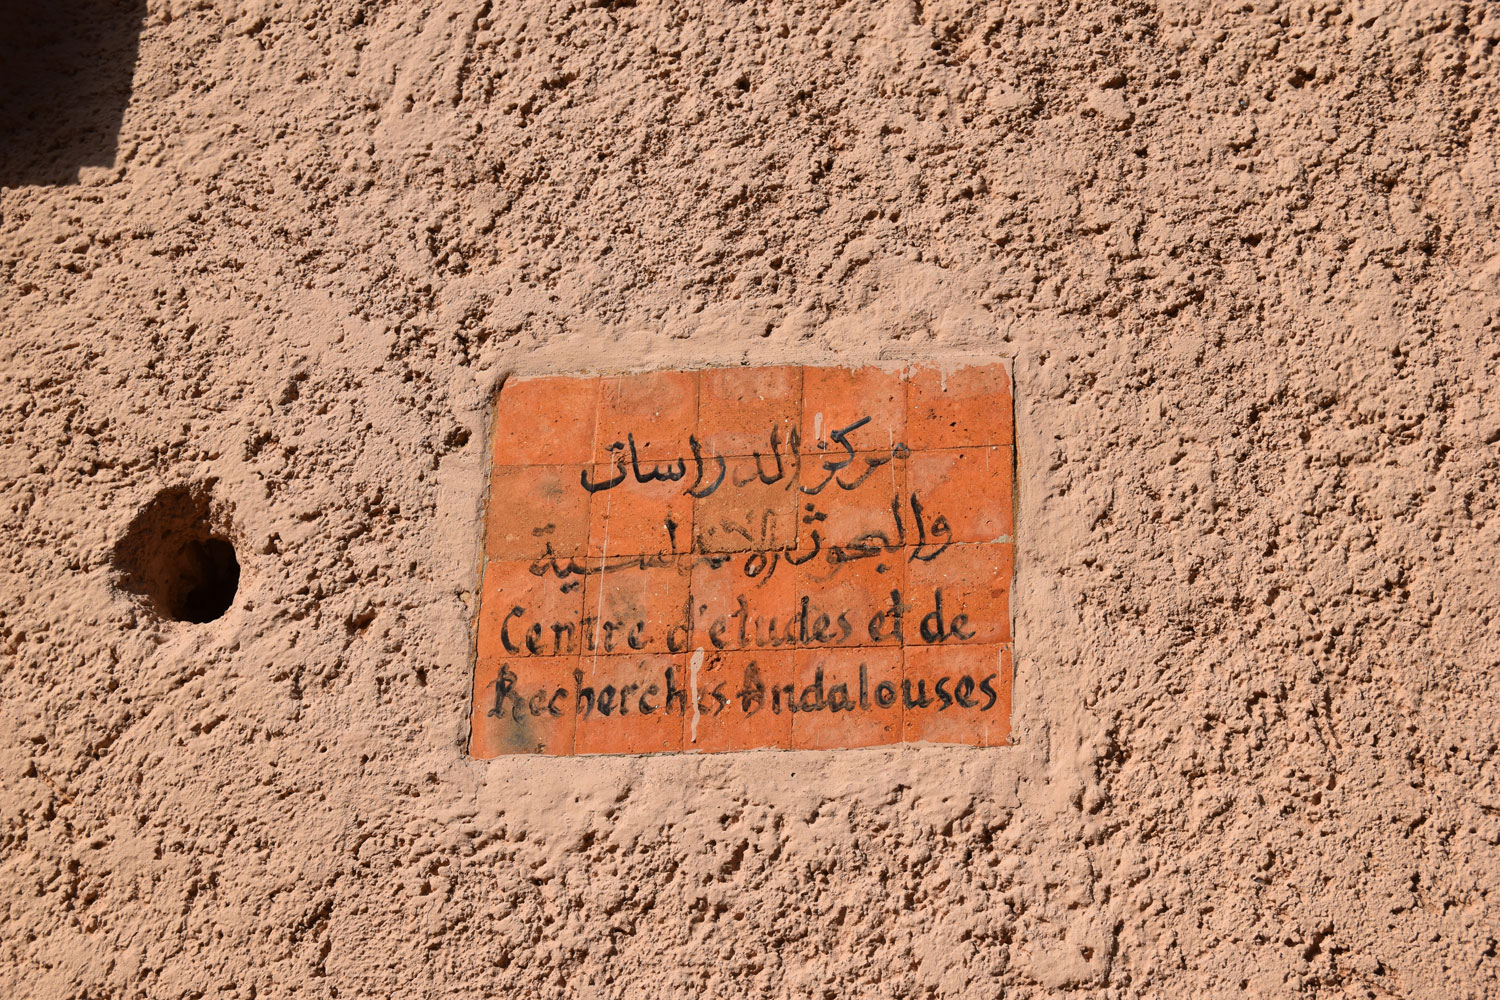 مركز الدراسات
والبحوث الاندلسية
Centre d'etudes et de
Recherches Andalouses